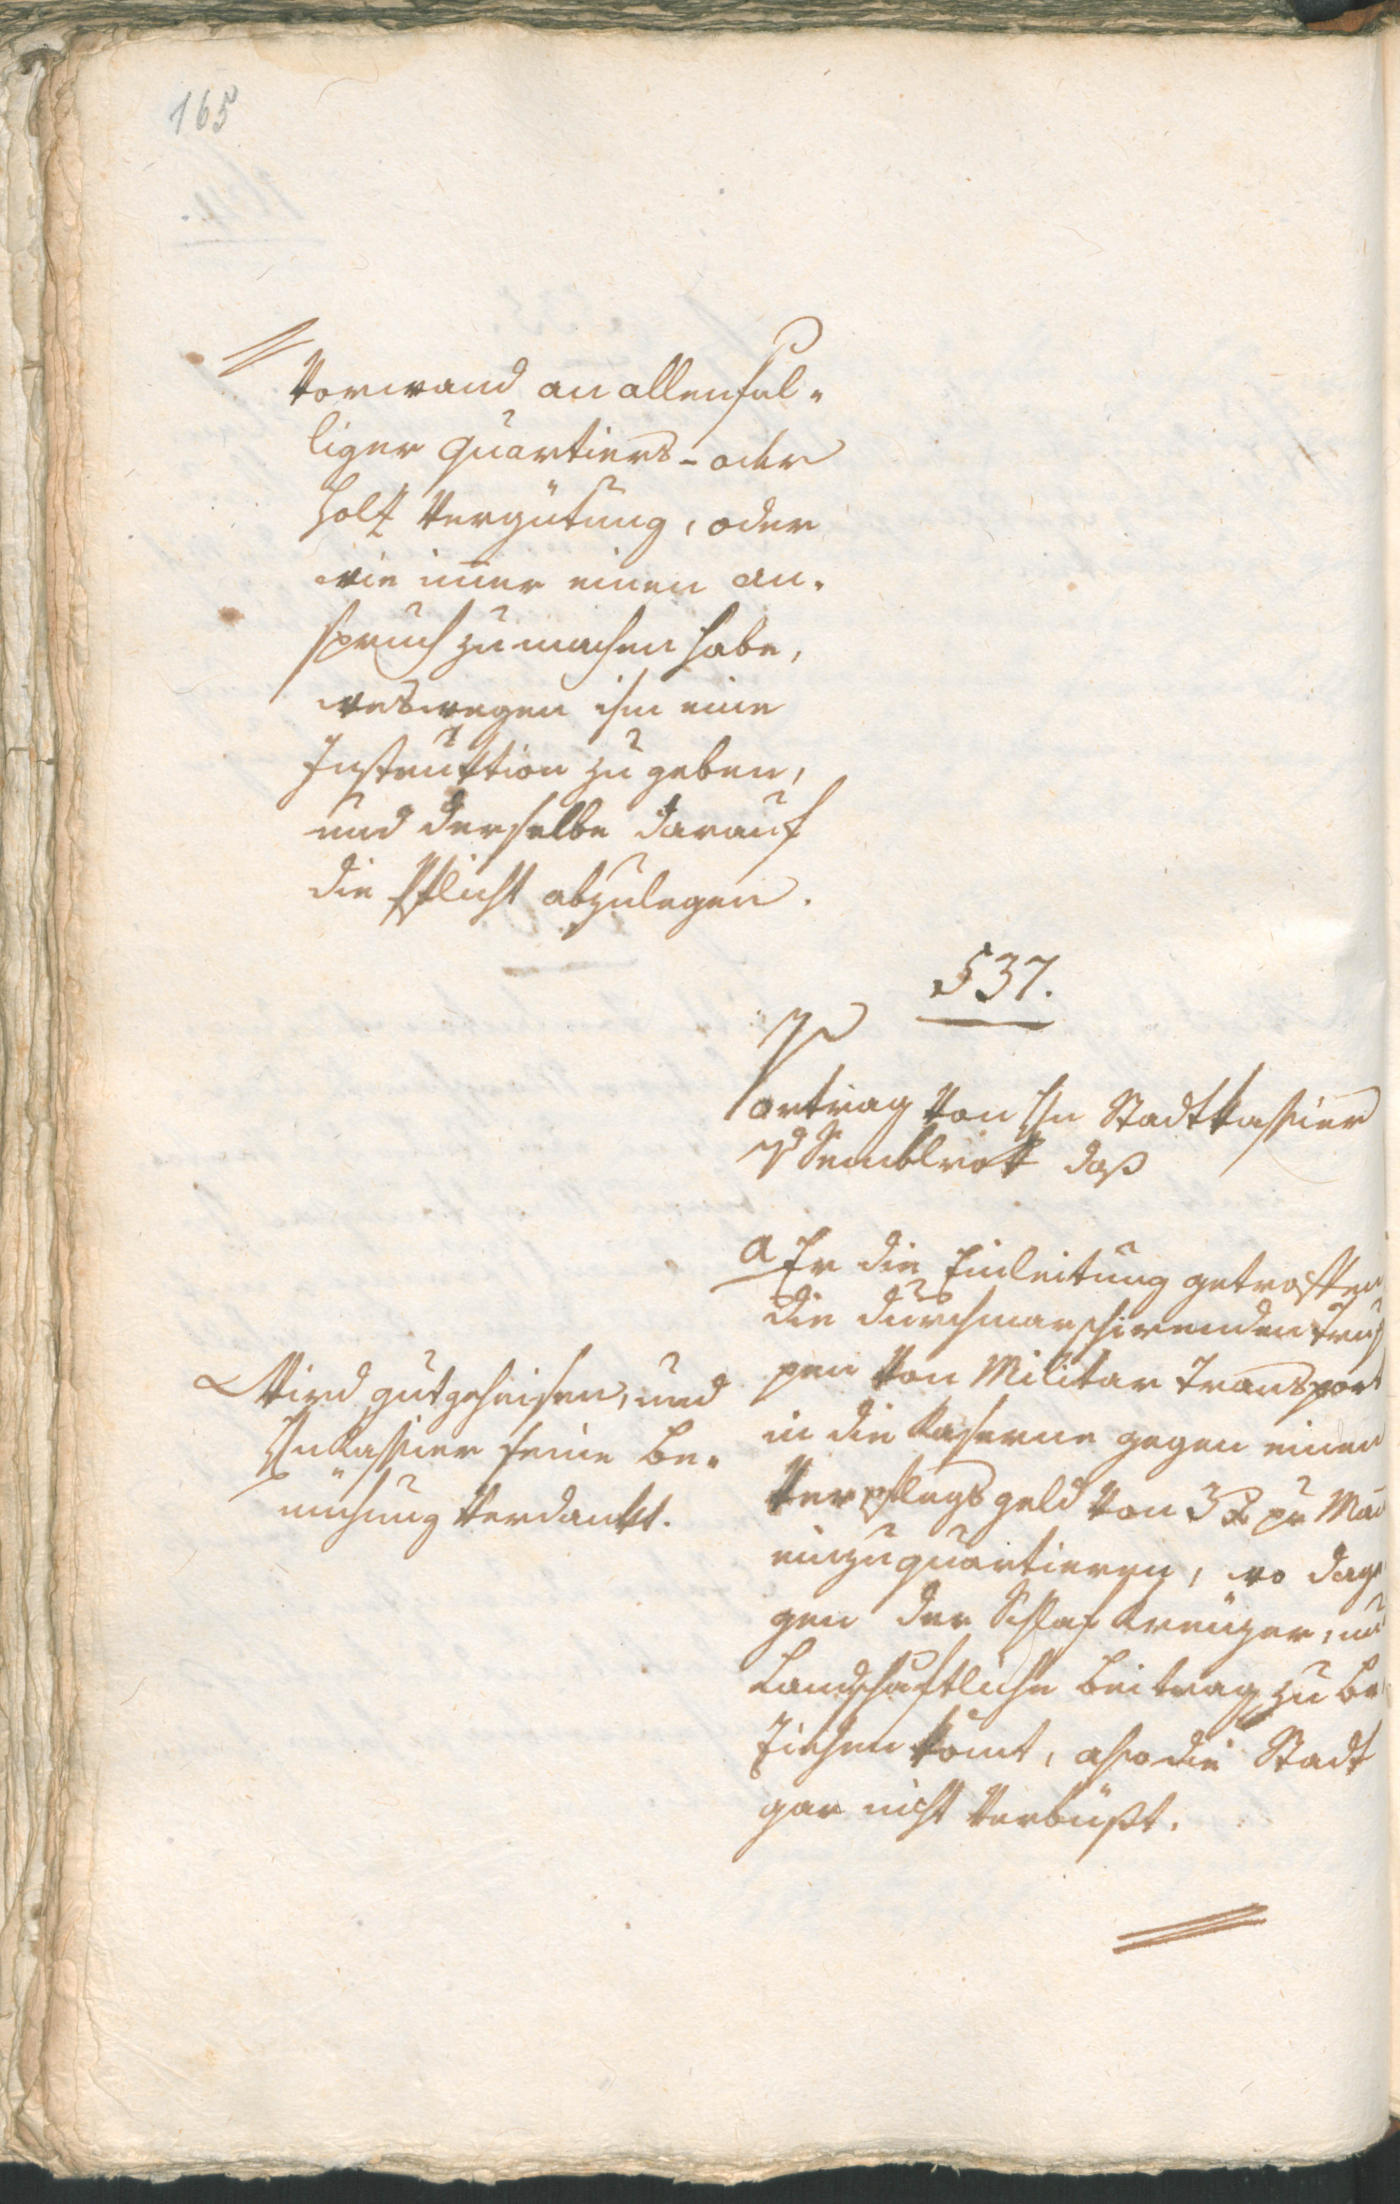 165
Vorwand an allenfal-
liger Quartiers- oder
Holz Vergütung, oder
wie im̅er einen An-
spruch zu machen habe,
weswegen ihm eine
Instruktion zu geben,
und derselbe darauf
die Pflicht abzulegen.
537.
Vortrag von Hn Stadtkassier
daß
a Er die Einleitung getroffen
die durchmarschirenden Trup
pen von Militar Transport
in die Kaserne gegen einen
Verpflegsgeld von 3 x pr Man̅
einzuquartieren, wo dage
gen der Schlaf Kreuzer, und
Landschaftliche Beitrag zu be
ziehen kom̅t, also die Stadt
gar nicht verbüßt.
Wird gutgeheisen, und
Hn Kassier seine Be-
mühung verdankt.